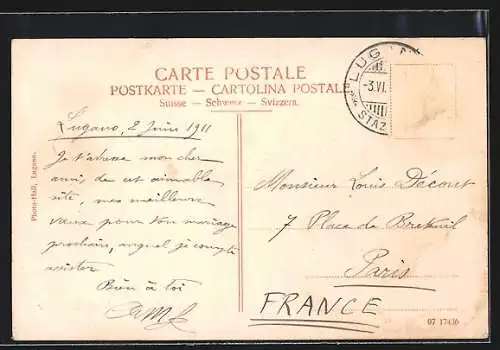 CARTE POSTALE
POSTKARTE — CARTOLINA POSTALE
Suisse — Schweiz — Svizzera.
LUGANO
-3.VI.
STAZ
Lugano, 2 Juin 1911
Je t'adresse mon cher
ami, de cet aimable
site, mes meilleurs
vœux pour ton mariage
prochain, auquel je compte
assister
Bien à toi
Monsieur Louis Décout
7 Place de Breteuil
Paris
FRANCE
Photo-Hall, Lugano.
07 17436